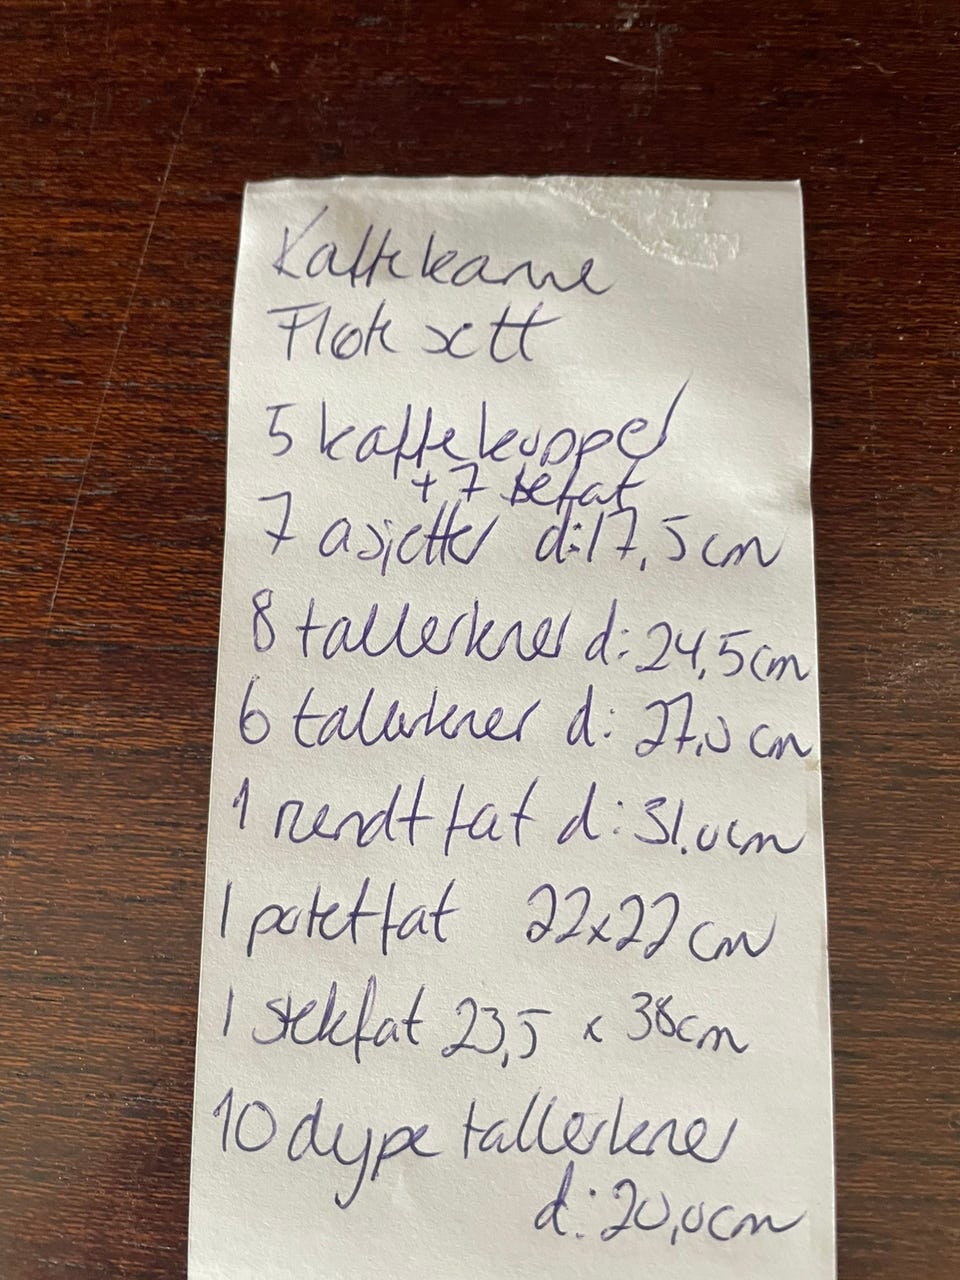 Kaffekanne
Fløtesett
5 kaffekopper
+ 7 tefat
7 asjetter d: 17,5 cm
8 tallerkner d: 24,5 cm
6 tallerkner d: 27,0 cm
1 rundt fat d: 31,0 cm
1 potetfat 22x22 cm
1 stekfat 23,5 x 38 cm
10 dype tallerkner
d: 20,0 cm